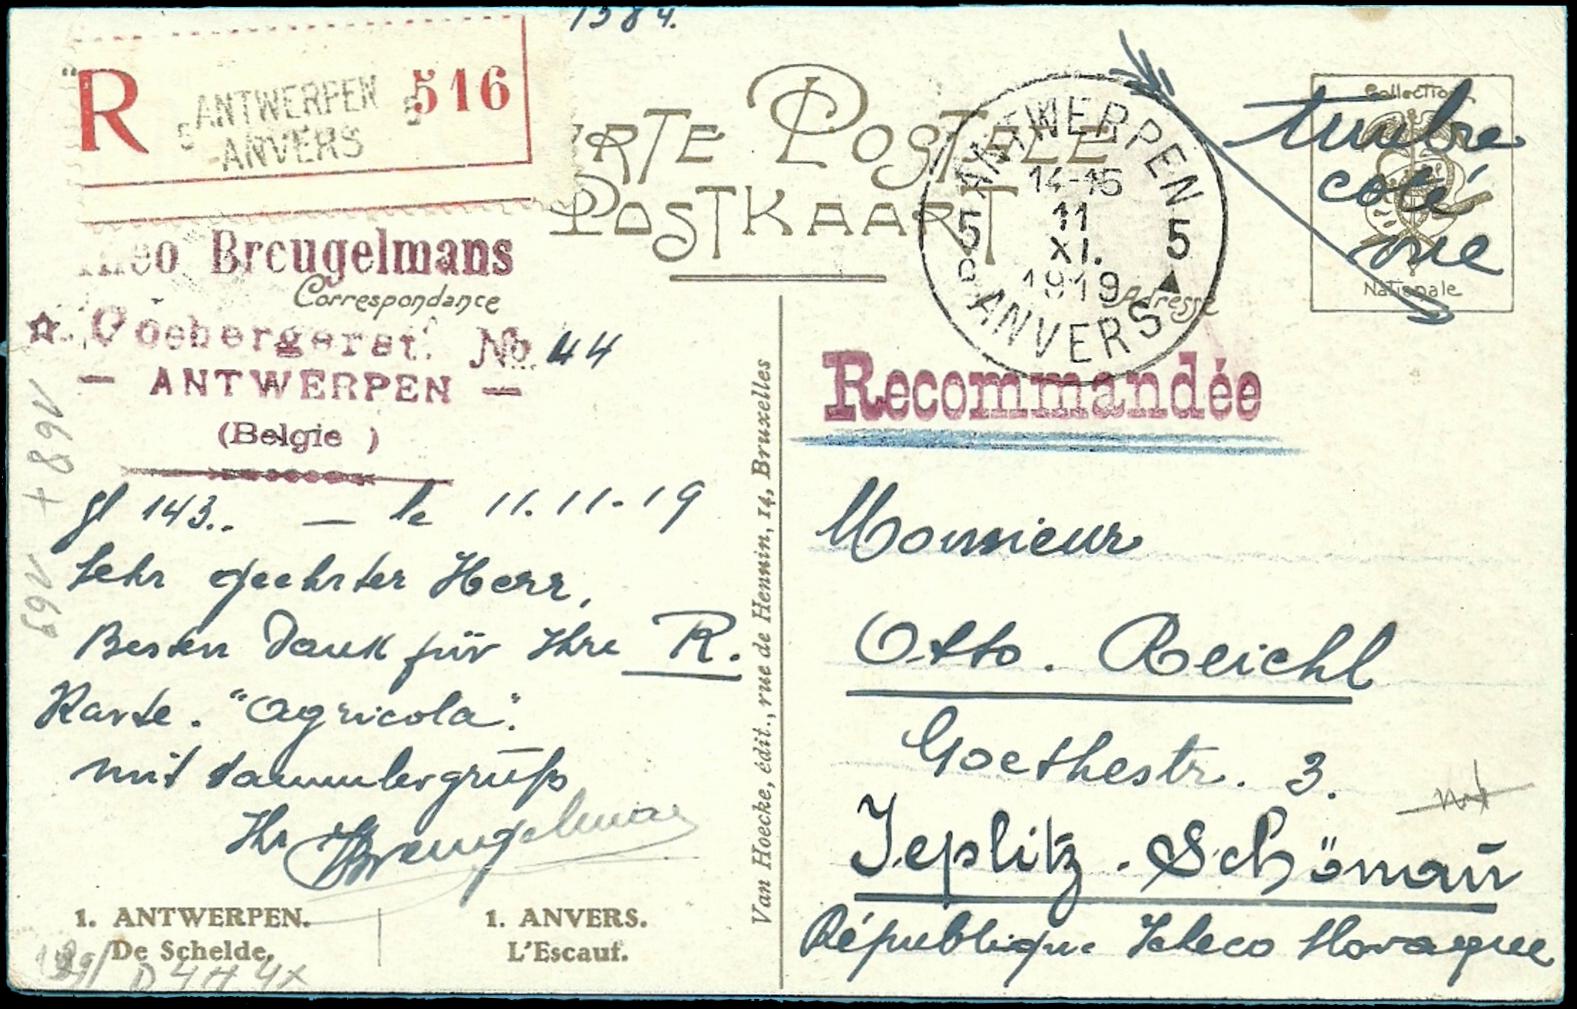 1384.
R ANTWERPEN 516
5 ANVERS 5
CARTE POSTALE
POSTKAART
Collection
Nationale
timbre
coté
vue
ANTWERPEN
14-15
11
XI.
1919
5 5
ANVERS
Theo Breugelmans
Correspondance
Adresse
Goebergerst. No. 44
— ANTWERPEN —
(Belgie )
Recommandée
143.. — le 11.11.19
Sehr geehrter Herr,
Besten Dank für Ihre R.
Karte. "Agricola".
mit Sammlergrüß
Ihr Breugelmans
1. ANTWERPEN.
De Schelde.
1. ANVERS.
L'Escaut.
Van Hoecke, édit., rue de Hennin, 14, Bruxelles
Monsieur
Otto. Reichl
Goethestr. 3.
Teplitz - Schönau
République Tcheco Slovaque
69V + 89V